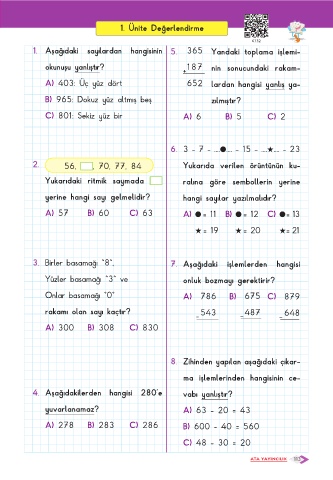 1. Ünite Değerlendirme
1. Aşağıdaki sayılardan hangisinin
okunuşu yanlıştır?
A) 403: Üç yüz dört
B) 965: Dokuz yüz altmış beş
C) 801: Sekiz yüz bir
2. 56, , 70, 77, 84
Yukarıdaki ritmik saymada
yerine hangi sayı gelmelidir?
A) 57 B) 60 C) 63
3. Birler basamağı "8",
Yüzler basamağı "3" ve
Onlar basamağı "0"
rakamı olan sayı kaçtır?
A) 300 B) 308 C) 830
4. Aşağıdakilerden hangisi 280'e
yuvarlanamaz?
A) 278 B) 283 C) 286
5. 365 Yandaki toplama işlemi-
+187 nin sonucundaki rakam-
652 lardan hangisi yanlış ya-
zılmıştır?
A) 6 B) 5 C) 2
6. 3 - 7 - ...●... - 15 - ...★... - 23
Yukarıda verilen örüntünün ku-
ralına göre sembollerin yerine
hangi sayılar yazılmalıdır?
A) ● = 11 B) ● = 12 C) ● = 13
★ = 19 ★ = 20 ★ = 21
7. Aşağıdaki işlemlerden hangisi
onluk bozmayı gerektirir?
A) 786 B) 675 C) 879
- 543 - 487 - 648
8. Zihinden yapılan aşağıdaki çıkar-
ma işlemlerinden hangisinin ce-
vabı yanlıştır?
A) 63 - 20 = 43
B) 600 - 40 = 560
C) 48 - 30 = 20
ATA YAYINCILIK